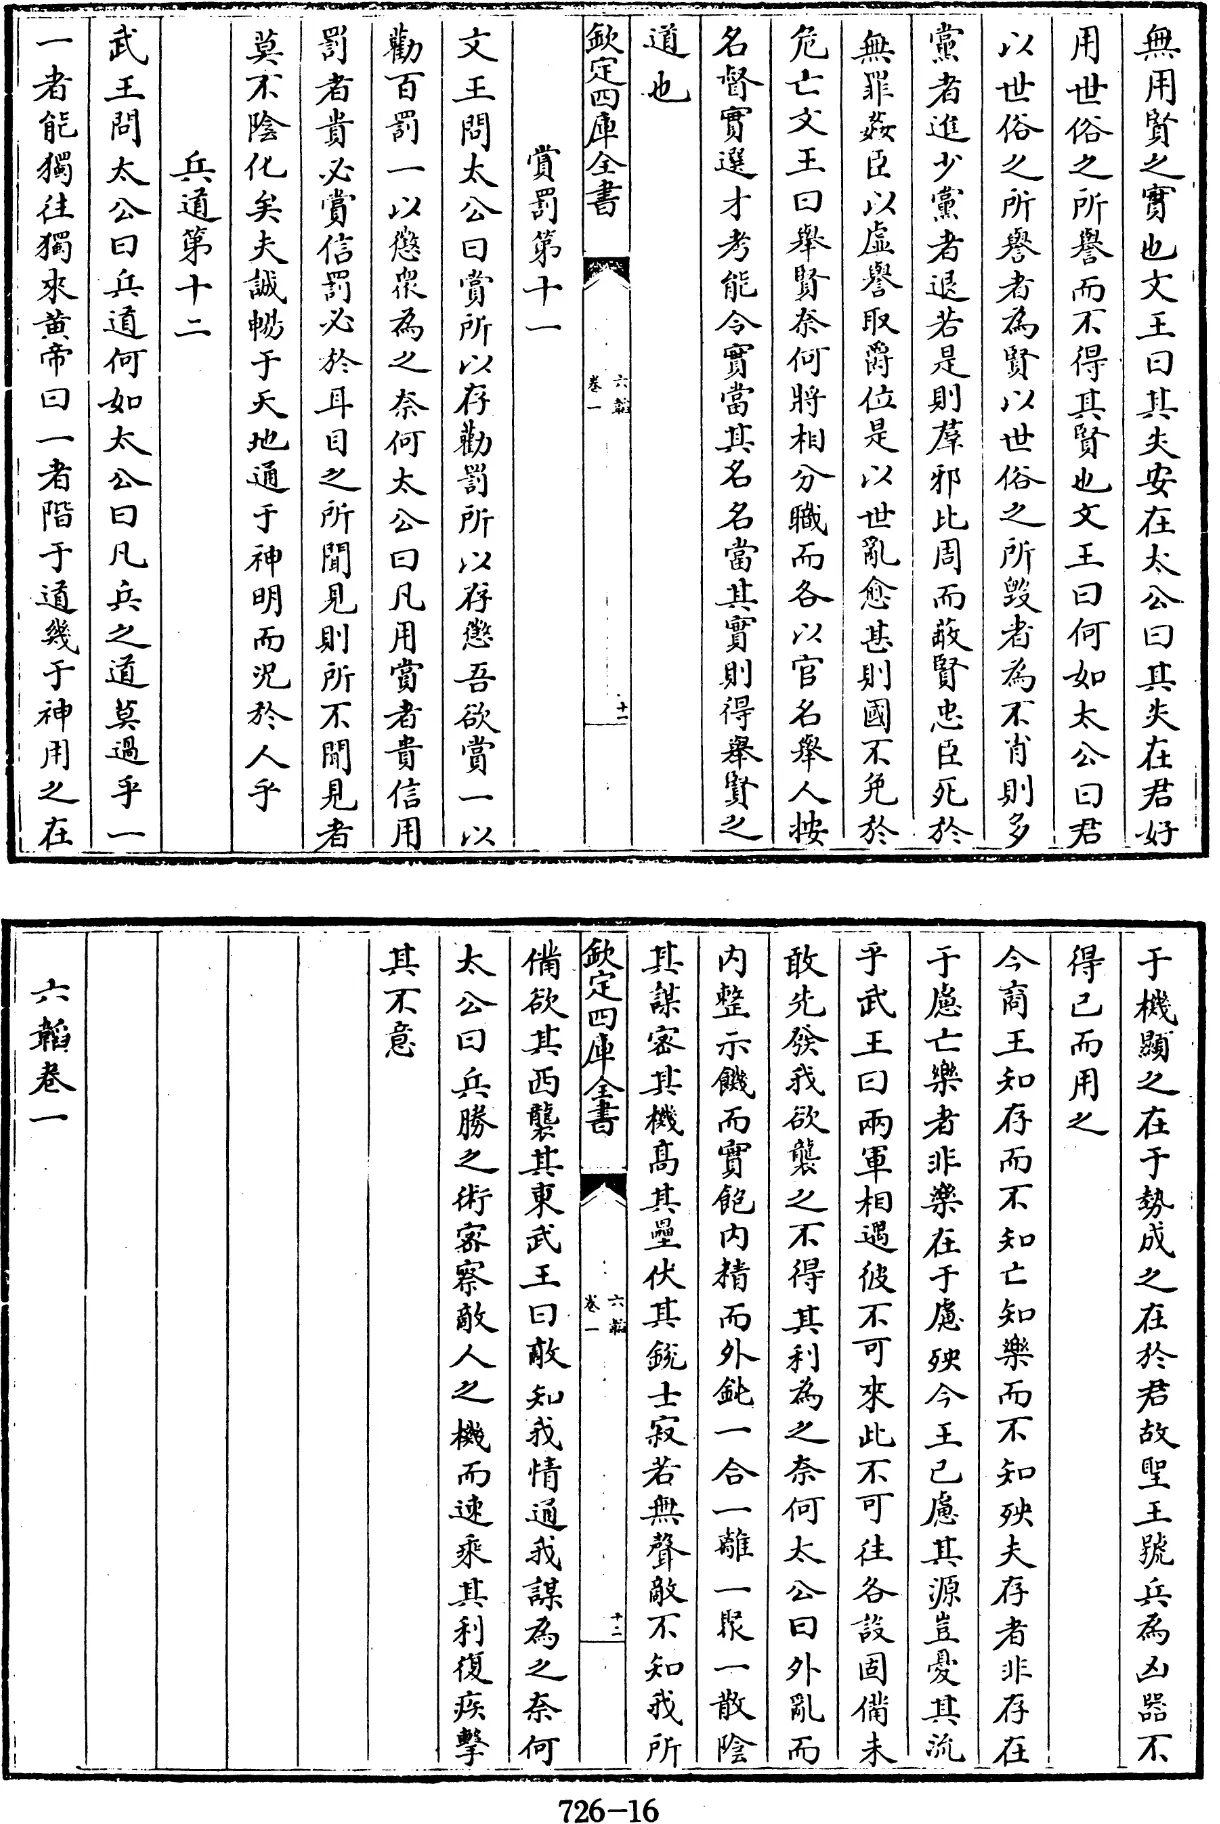 無用賢之實也文王曰其失安在太公曰其失在君好
用世俗之所譽而不得其賢也文王曰何如太公曰君
以世俗之所譽者為賢以世俗之所毀者為不肖則多
黨者進少黨者退若是則羣邪比周而蔽賢忠臣死於
無罪姦臣以虛譽取爵位是以世亂愈甚則國不免於
危亡文王曰舉賢奈何將相分職而各以官名舉人按
名督實選才考能令實當其名名當其實則得舉賢之
道也
欽定四庫全書
六韜
卷一
十一
賞罰第十一
文王問太公曰賞所以存勸罰所以存懲吾欲賞一以
勸百罰一以懲衆為之奈何太公曰凡用賞者貴信用
罰者貴必賞信罰必於耳目之所聞見則所不聞見者
莫不陰化矣夫誠暢于天地通于神明而況於人乎
兵道第十二
武王問太公曰兵道何如太公曰凡兵之道莫過乎一
一者能獨往獨來黄帝曰一者階于道幾于神用之在
于機顯之在于勢成之在於君故聖王號兵為凶器不
得已而用之
今商王知存而不知亡知樂而不知殃夫存者非存在
于慮亡樂者非樂在于慮殃今王已慮其源豈憂其流
乎武王曰兩軍相遇彼不可來此不可往各設固備未
敢先發我欲襲之不得其利為之奈何太公曰外亂而
内整示饑而實飽内精而外鈍一合一離一聚一散陰
其謀密其機高其壘伏其銳士寂若無聲敵不知我所
欽定四庫全書
六韜
卷一
十二
備欲其西襲其東武王曰敵知我情通我謀為之奈何
太公曰兵勝之術密察敵人之機而速乘其利復疾擊
其不意
六韜卷一
726-16